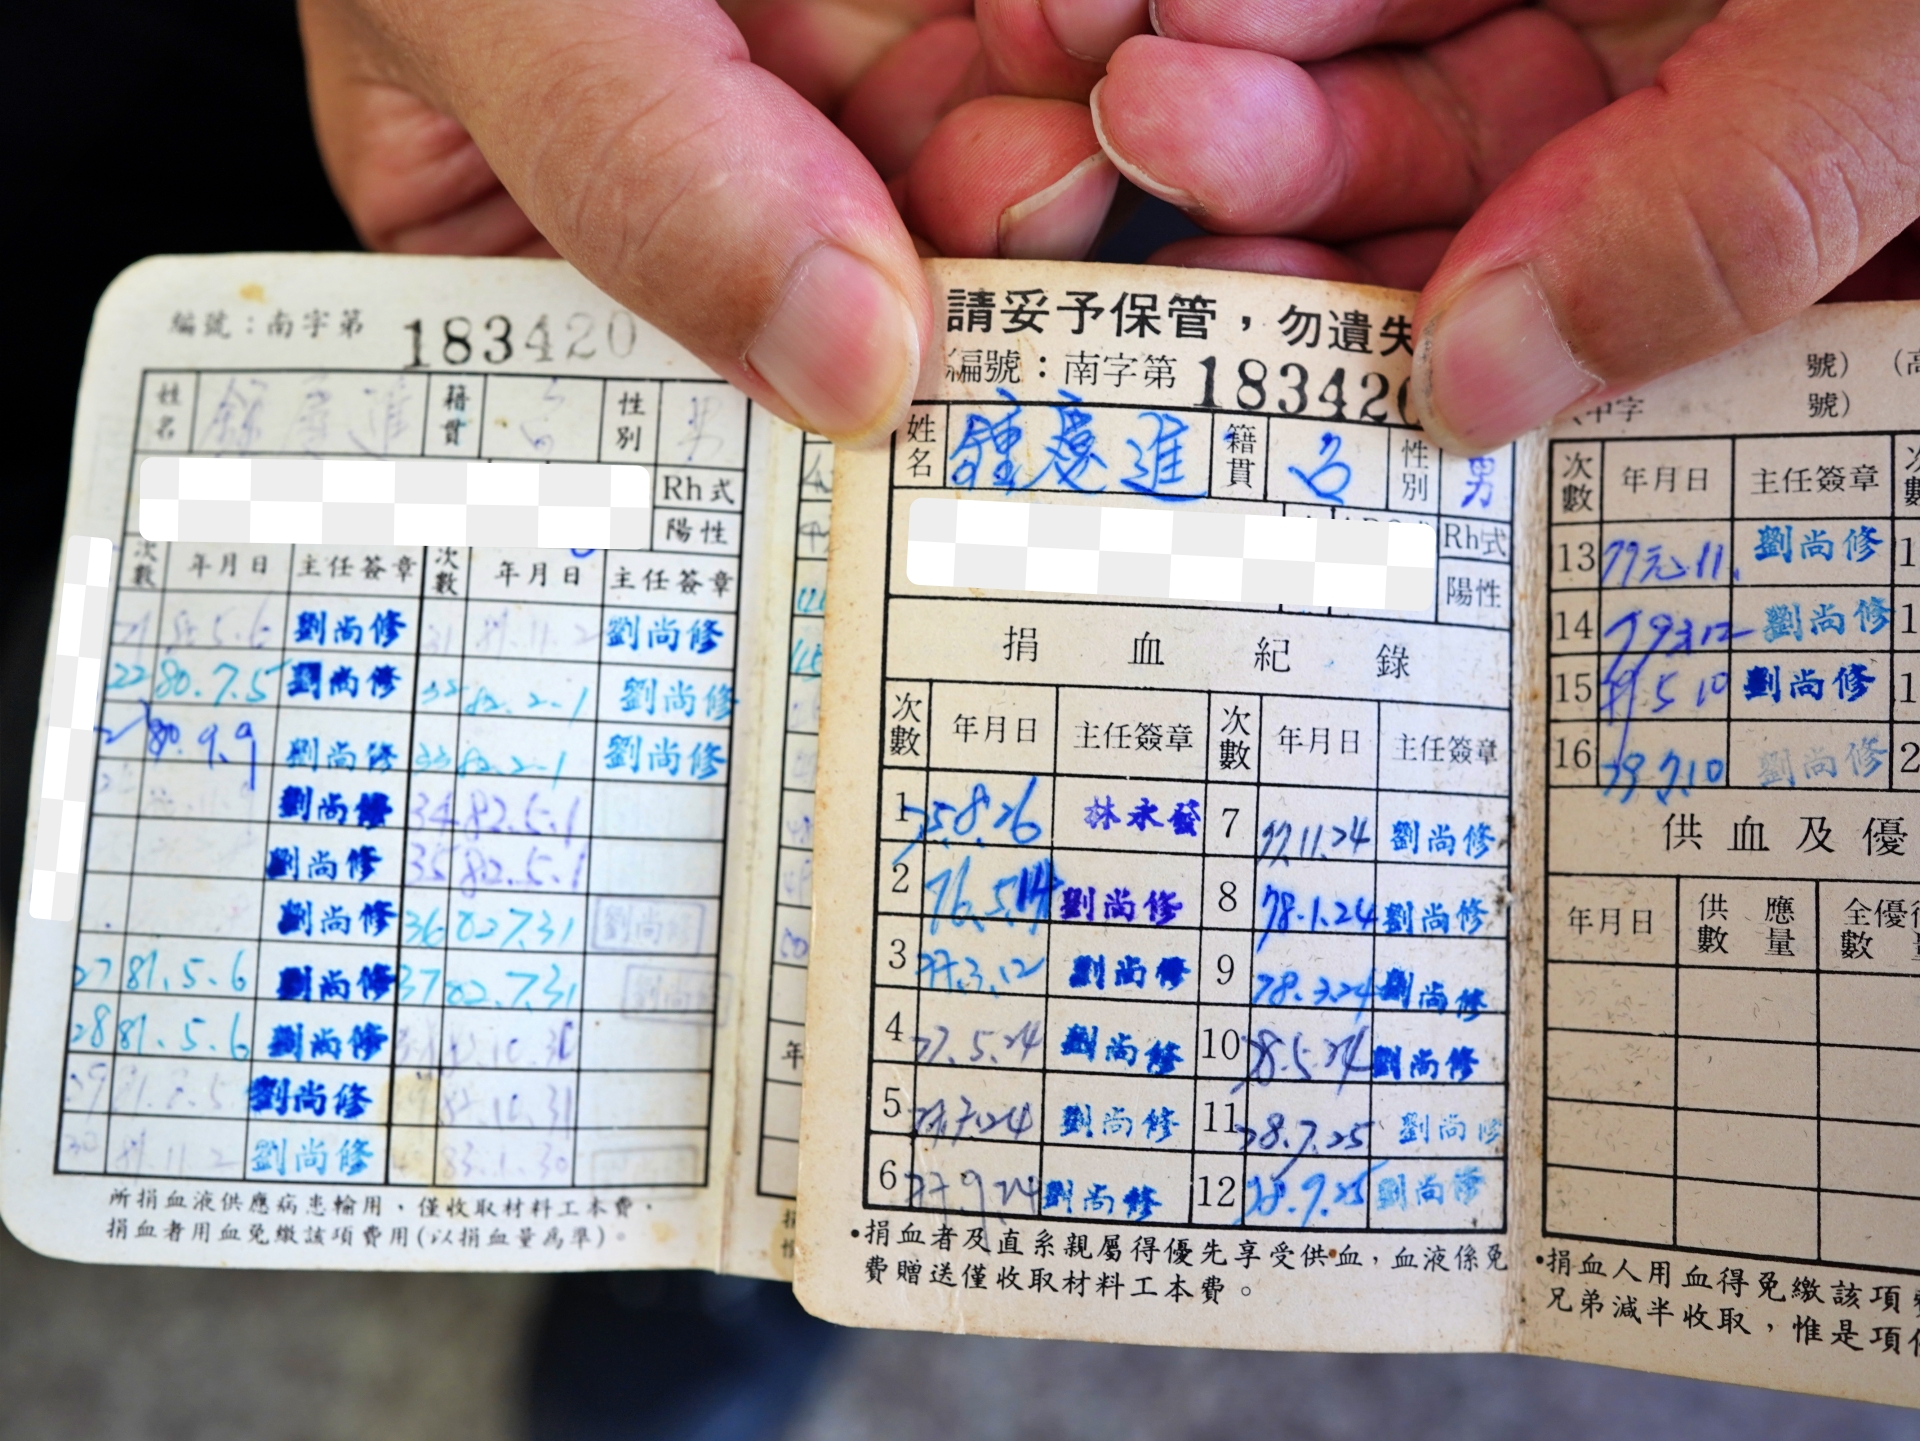 編號：南字第 183420
姓名 籍貫 性別 男
Rh式
陽性
次數 年月日 主任簽章 次數 年月日 主任簽章
劉尚修 劉尚修
22 80.7.5 劉尚修 82.2.1 劉尚修
80.9.9 劉尚修 33 82.2.1 劉尚修
劉尚修 34 82.5.1
劉尚修 35 82.5.1
劉尚修 36 82.7.31 劉尚修
27 81.5.6 劉尚修 37 82.7.31 劉尚修
28 81.5.6 劉尚修
劉尚修 82.10.31
30 81.11.2 劉尚修 83.1.30
所捐血液供應病患輸用，僅收取材料工本費，
捐血者用血免繳該項費用(以捐血量為準)。
請妥予保管，勿遺失
編號：南字第 183420
姓名 鍾慶進 籍貫 台 性別 男
Rh式
陽性
捐血紀錄
次數 年月日 主任簽章 次數 年月日 主任簽章
1 75.8.26 林永發 7 77.11.24 劉尚修
2 76.5.14 劉尚修 8 78.1.24 劉尚修
3 77.3.12 劉尚修 9 78.3.24 劉尚修
4 77.5.24 劉尚修 10 78.5.24 劉尚修
5 77.7.24 劉尚修 11 78.7.25 劉尚修
6 77.9.24 劉尚修 12 78.9.25 劉尚修
•捐血者及直系親屬得優先享受供血，血液係免
費贈送僅收取材料工本費。
號） （高
（中字 號）
次數 年月日 主任簽章 次數
13 79.元.11. 劉尚修 1
14 劉尚修 1
15 79.5.10 劉尚修 1
16 79.7.10 劉尚修 2
供血及優
年月日 供應數量 全優待數量
•捐血人用血得免繳該項
兄弟減半收取，惟是項